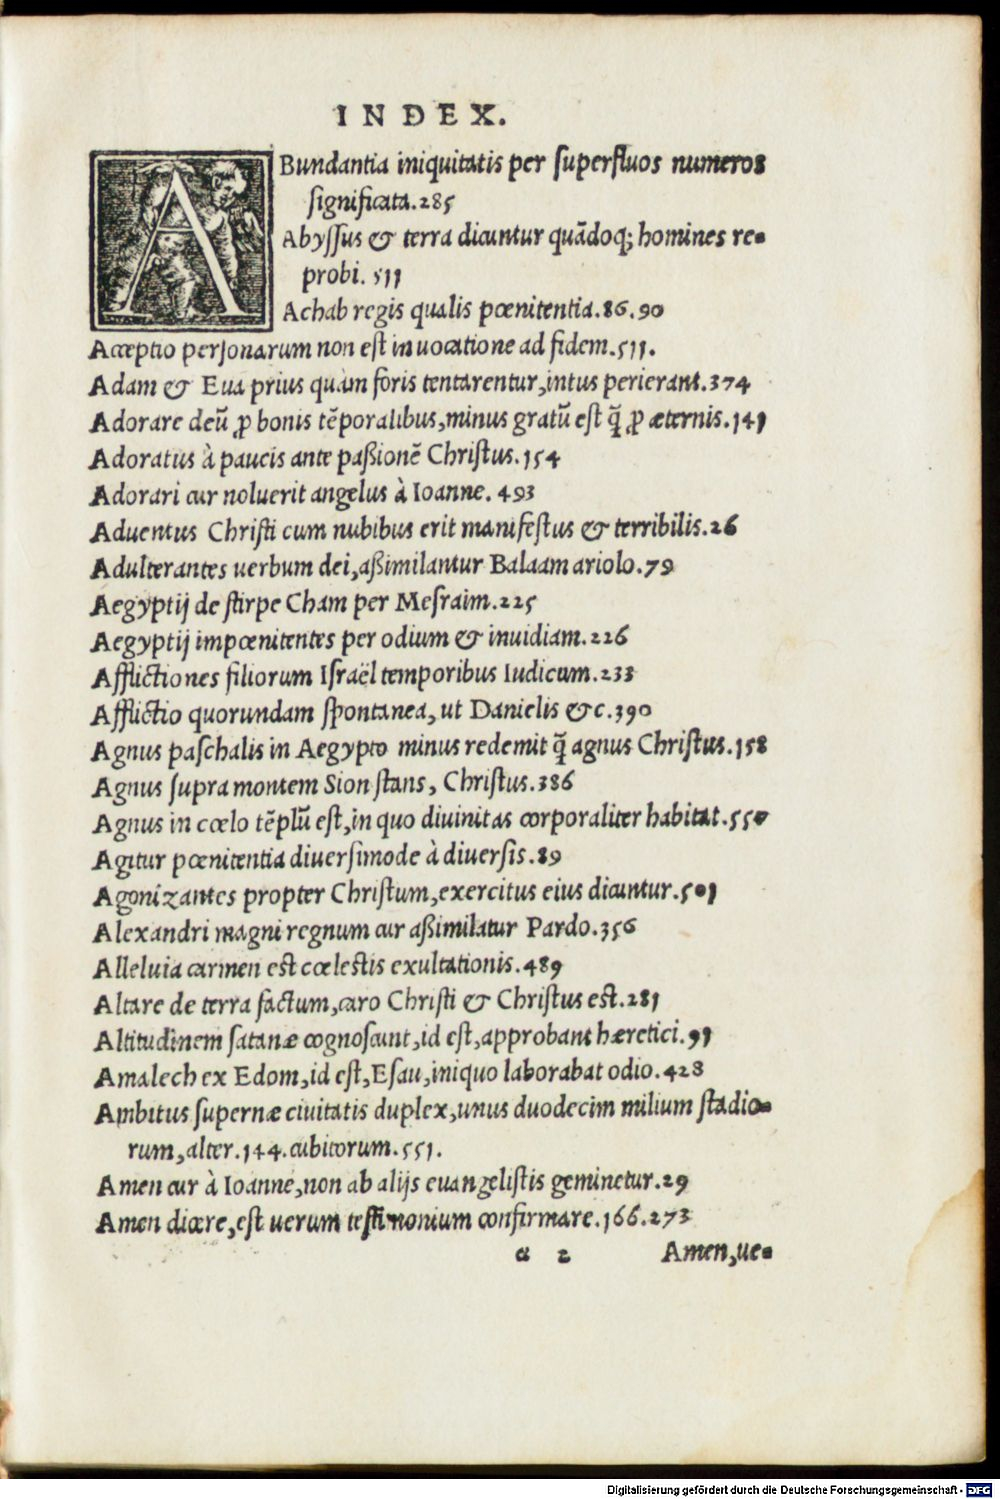 INDEX.
ABundantia iniquitatis per superfluos numeros
significata.285
Abyssus & terra dicuntur quãdoq; homines re-
probi. 511
Achab regis qualis pœnitentia.86.90
Acceptio personarum non est in uocatione ad fidem.511.
Adam & Eua prius quàm foris tentarentur,intus perierant.374
Adorare deũ ꝓ bonis tẽporalibus,minus gratũ est q̃ ꝓ æternis.141
Adoratus à paucis ante paßionẽ Christus.154
Adorari cur noluerit angelus à Ioanne. 493
Aduentus Christi cum nubibus erit manifestus & terribilis.26
Adulterantes uerbum dei,aßimilantur Balaam ariolo.79
Aegyptij de stirpe Cham per Mesraim.225
Aegyptij impœnitentes per odium & inuidiam.226
Afflictiones filiorum Israël temporibus Iudicum.233
Afflictio quorundam spontanea, ut Danielis &c.390
Agnus paschalis in Aegypto minus redemit q̃ agnus Christus.158
Agnus supra montem Sion stans, Christus.386
Agnus in cœlo tẽplũ est,in quo diuinitas corporaliter habitat.550
Agitur pœnitentia diuersimode à diuersis.89
Agonizantes propter Christum,exercitus eius dicuntur.501
Alexandri magni regnum cur aßimilatur Pardo.356
Alleluia carmen est cœlestis exultationis.489
Altare de terra factum,caro Christi & Christus est.281
Altitudinem satanæ cognoscunt,id est,approbant hæretici.99
Amalech ex Edom,id est,Esau,iniquo laborabat odio.428
Ambitus supernæ ciuitatis duplex,unus duodecim milium stadio-
rum,alter.144.cubitorum.551.
Amen cur à Ioanne,non ab alijs euangelistis geminetur.29
Amen dicere,est uerum testimonium confirmare.166.273
a 2 Amen,ue-
Digitalisierung gefördert durch die Deutsche Forschungsgemeinschaft - DFG